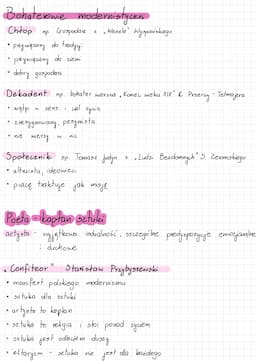 Bohaterowie modernistyczni
Chłop np. Gospodarz z „Wesela" Wyspiańskiego
• przywiązany do tradycji
• przywiązany do ziemi
• dobry gospodarz
Dekadent np. bohater wiersza „Koniec wieku XIX" K. Przerwy - Tetmajera
• wątpi w sens i cel życia
• zrezygnowany, pesymista
• nie wierzy w nic
Społecznik np. Tomasz Judym z „Ludzi Bezdomnych" S. Żeromskiego
• altruista, ideowiec
• pracę traktuje jak misję
Poeta - kapłan sztuki
artysta - wyjątkowa indywidualność, szczególne predyspozycje emocjonalne
i duchowe
„Confiteor" Stanisław Przybyszewski
• manifest polskiego modernizmu
• sztuka dla sztuki
• artysta to kapłan
• sztuka to religia i stoi ponad życiem
• sztuka jest odbiciem duszy
• elitaryzm - sztuka nie jest dla każdego